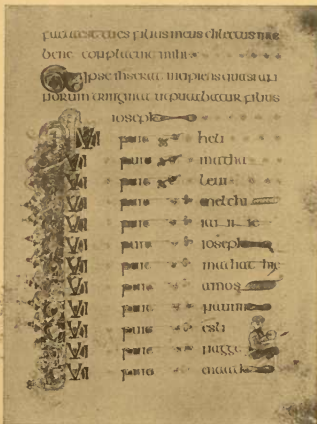 facta est tu es filius meus dilectus in te
bene conplacuit mihi
ipse ihs erat incipiens quasi an
norum triginta ut putabatur filius
ioseph
qui fuit heli
qui fuit matha
qui fuit leui
qui fuit melchi
qui fuit
qui fuit ioseph
qui fuit mathathie
qui fuit amos
qui fuit nauum
qui fuit esli
qui fuit nagge
qui fuit maath